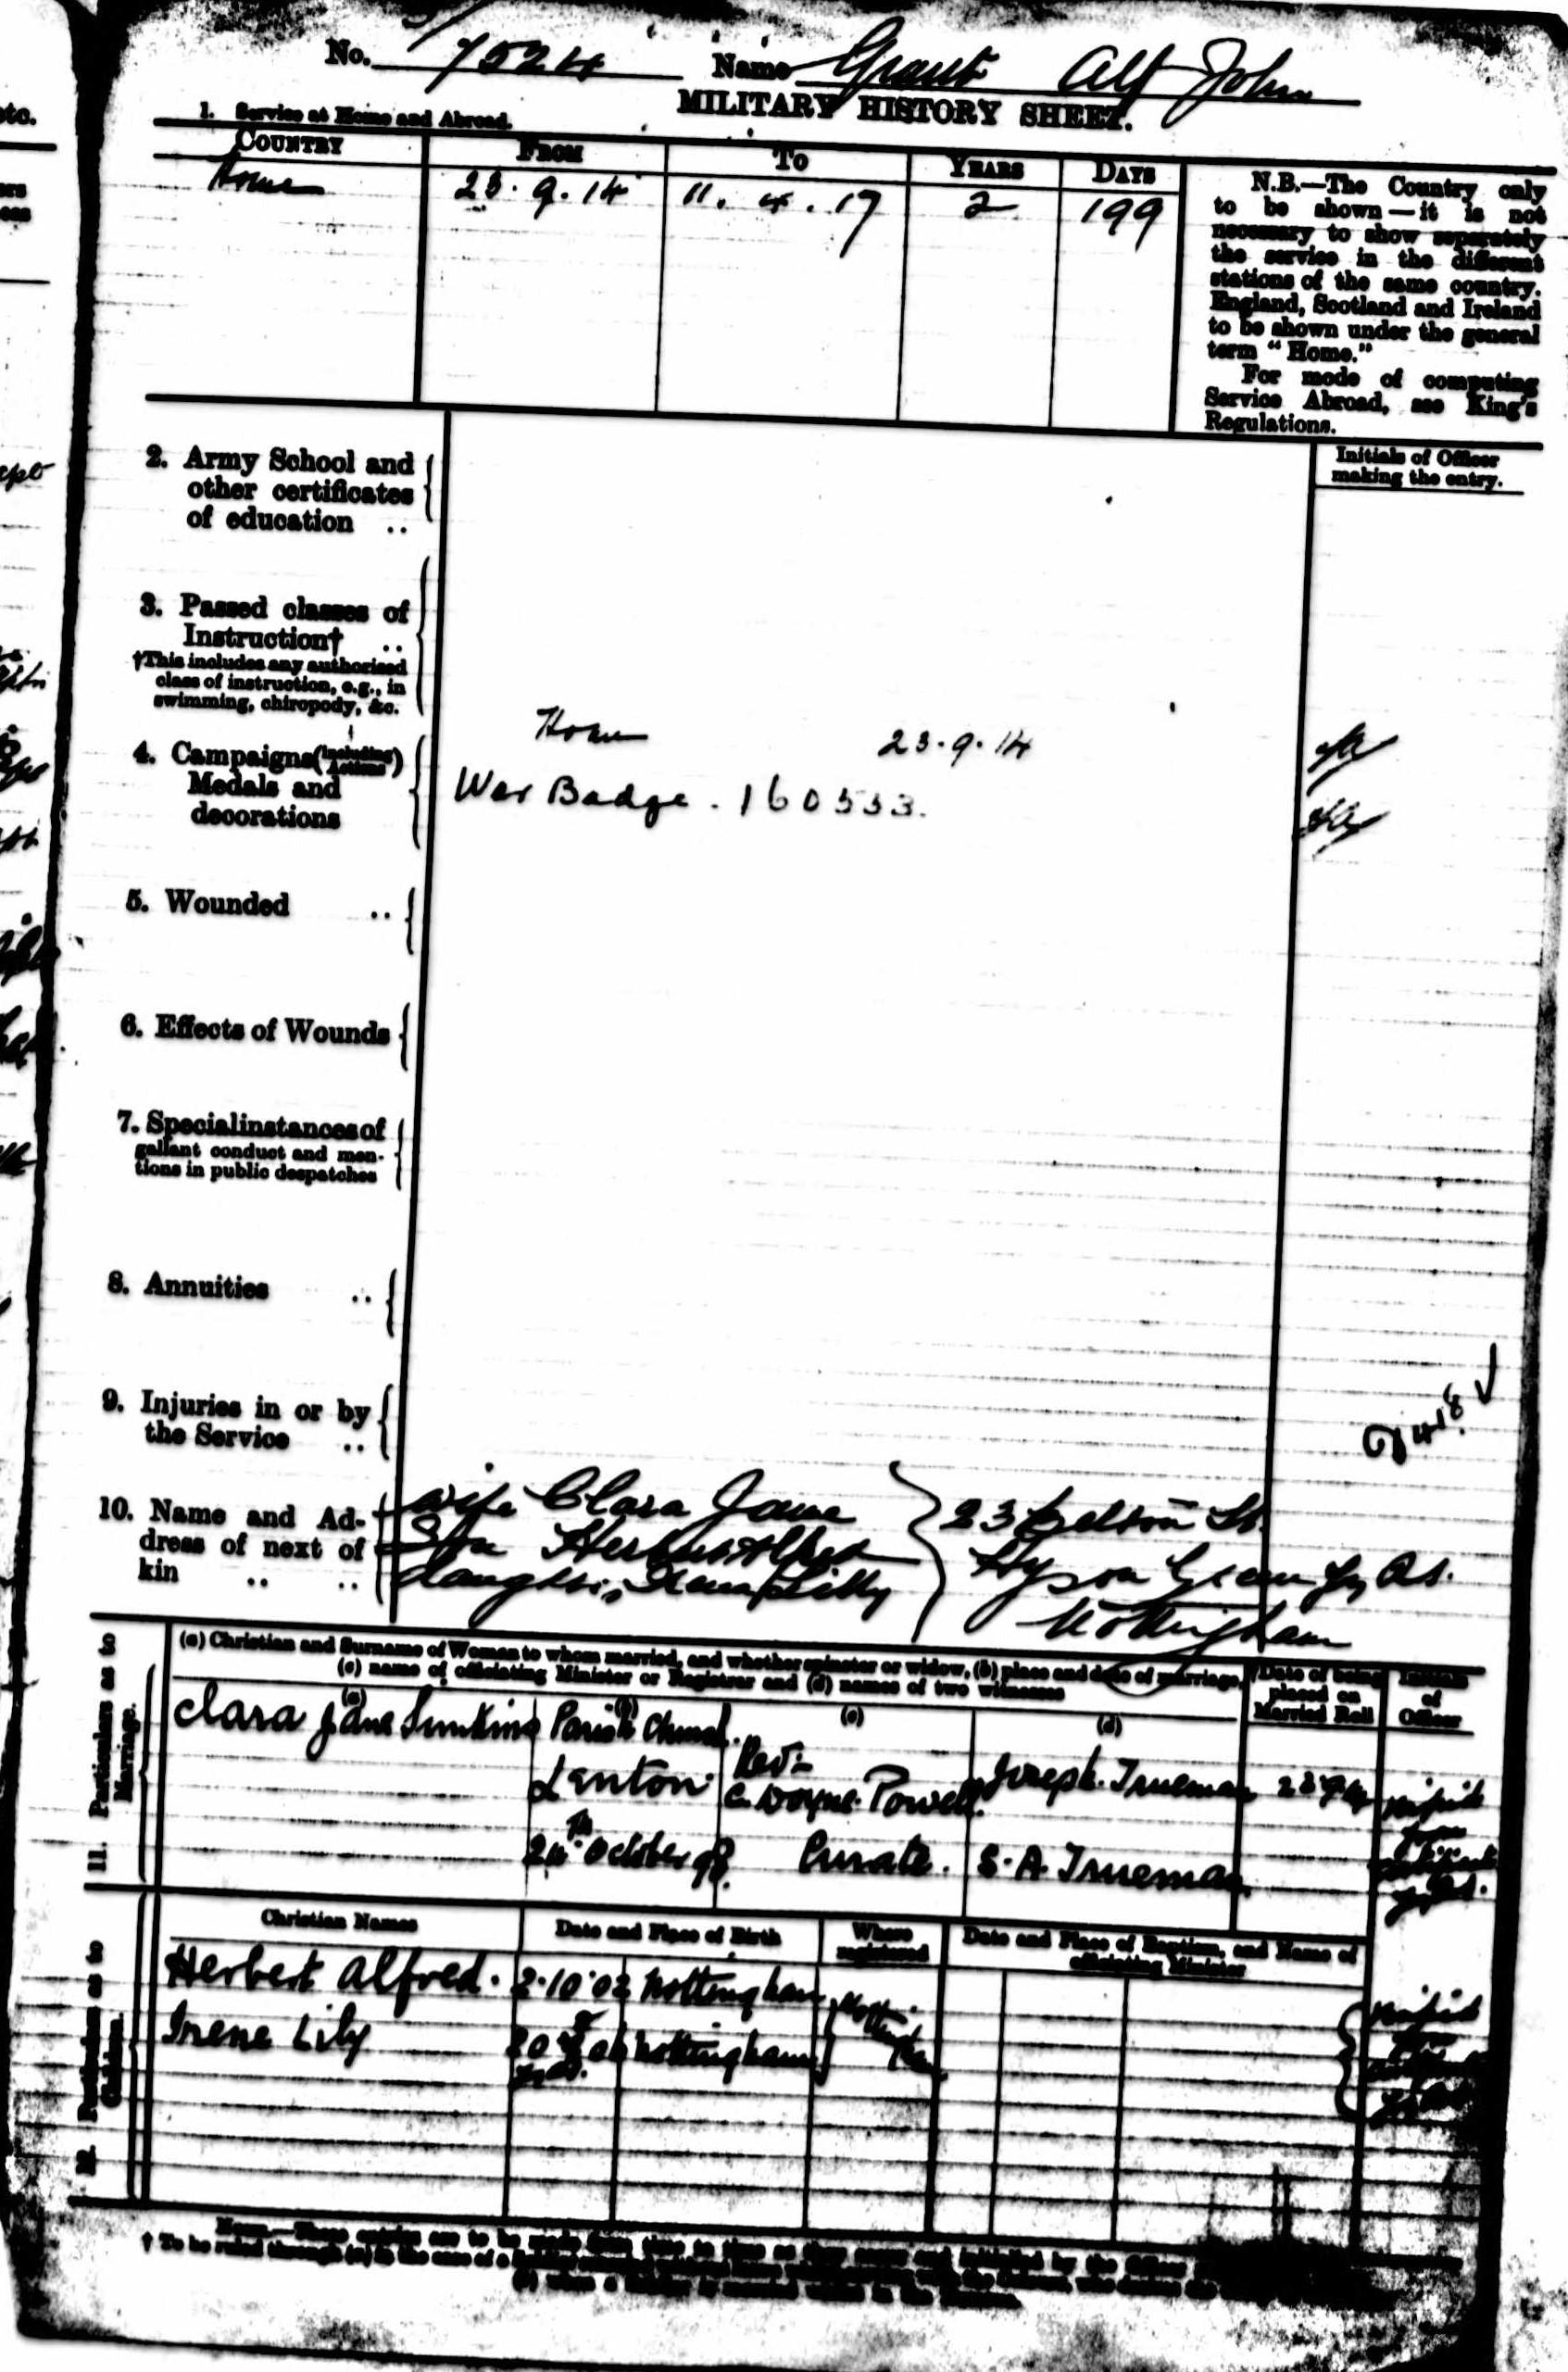 No. 7524 Name Grant Alf John
MILITARY HISTORY SHEET.
1. Service at Home and Abroad.
COUNTRY FROM TO YEARS DAYS
Home 23.9.14 11.4.17 2 199
N.B.—The Country only
to be shown — it is not
necessary to show separately
the service in the different
stations of the same country.
England, Scotland and Ireland
to be shown under the general
term "Home."
For mode of computing
Service Abroad, see King's
Regulations.
Initials of Officer
making the entry.
2. Army School and
other certificates
of education ..
3. Passed classes of
Instruction† ..
†This includes any authorised
class of instruction, e.g., in
swimming, chiropody, &c.
4. Campaigns (including Actions)
Medals and
decorations
Home 23.9.14
War Badge. 160533.
5. Wounded ..
6. Effects of Wounds
7. Special instances of
gallant conduct and men-
tions in public despatches
8. Annuities ..
9. Injuries in or by
the Service ..
10. Name and Ad-
dress of next of
kin .. ..
wife Clara Jane
Son Herbert Alfred
daughter Irene Lilly
23 St.
Hyson Green
Nottingham
11. Particulars as to
Marriage.
(a) Christian and Surname of Woman to whom married, and whether spinster or widow, (b) place and date of marriage,
(c) name of officiating Minister or Registrar and (d) names of two witnesses
Date of being
placed on
Married Roll
Initials
of
Officer
(a) (b) (c) (d)
Clara Jane Simkins Parish Church.
Lenton. Rev:
C. Doyne Powell. Joseph. Trueman
24th October 98. Curate. S. A. Trueman
12. Particulars as to
Children.
Christian Names Date and Place of Birth Where
registered Date and Place of Baptism, and Name of
officiating Minister
Herbert Alfred. 2.10.02 Nottingham Nottingham
Irene Lily Nottingham